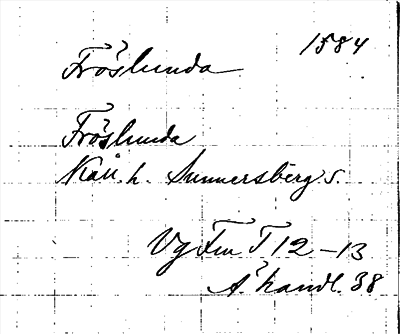 Fröslunda 1584
Fröslunda
Kåll. h. Sunnersberg s.
Vg Fru T 12-13
Å. handl. 38